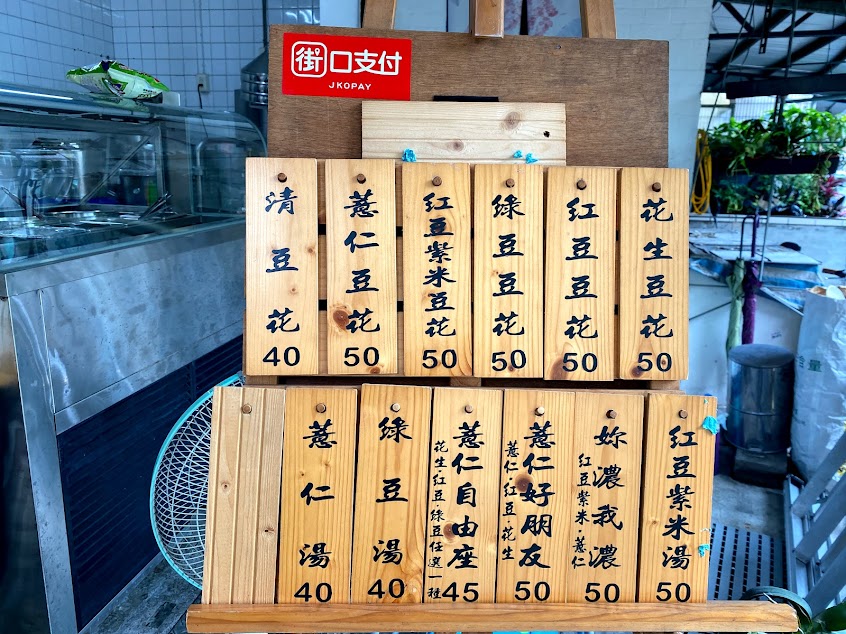 街口支付
JKOPAY
花生豆花
50
紅豆豆花
50
綠豆豆花
50
紅豆紫米豆花
50
薏仁豆花
50
清豆花
40
紅豆紫米湯
50
妳濃我濃
紅豆紫米·薏仁
50
薏仁好朋友
薏仁·紅豆·花生
50
薏仁自由座
花生·紅豆·綠豆任選一種
45
綠豆湯
40
薏仁湯
40